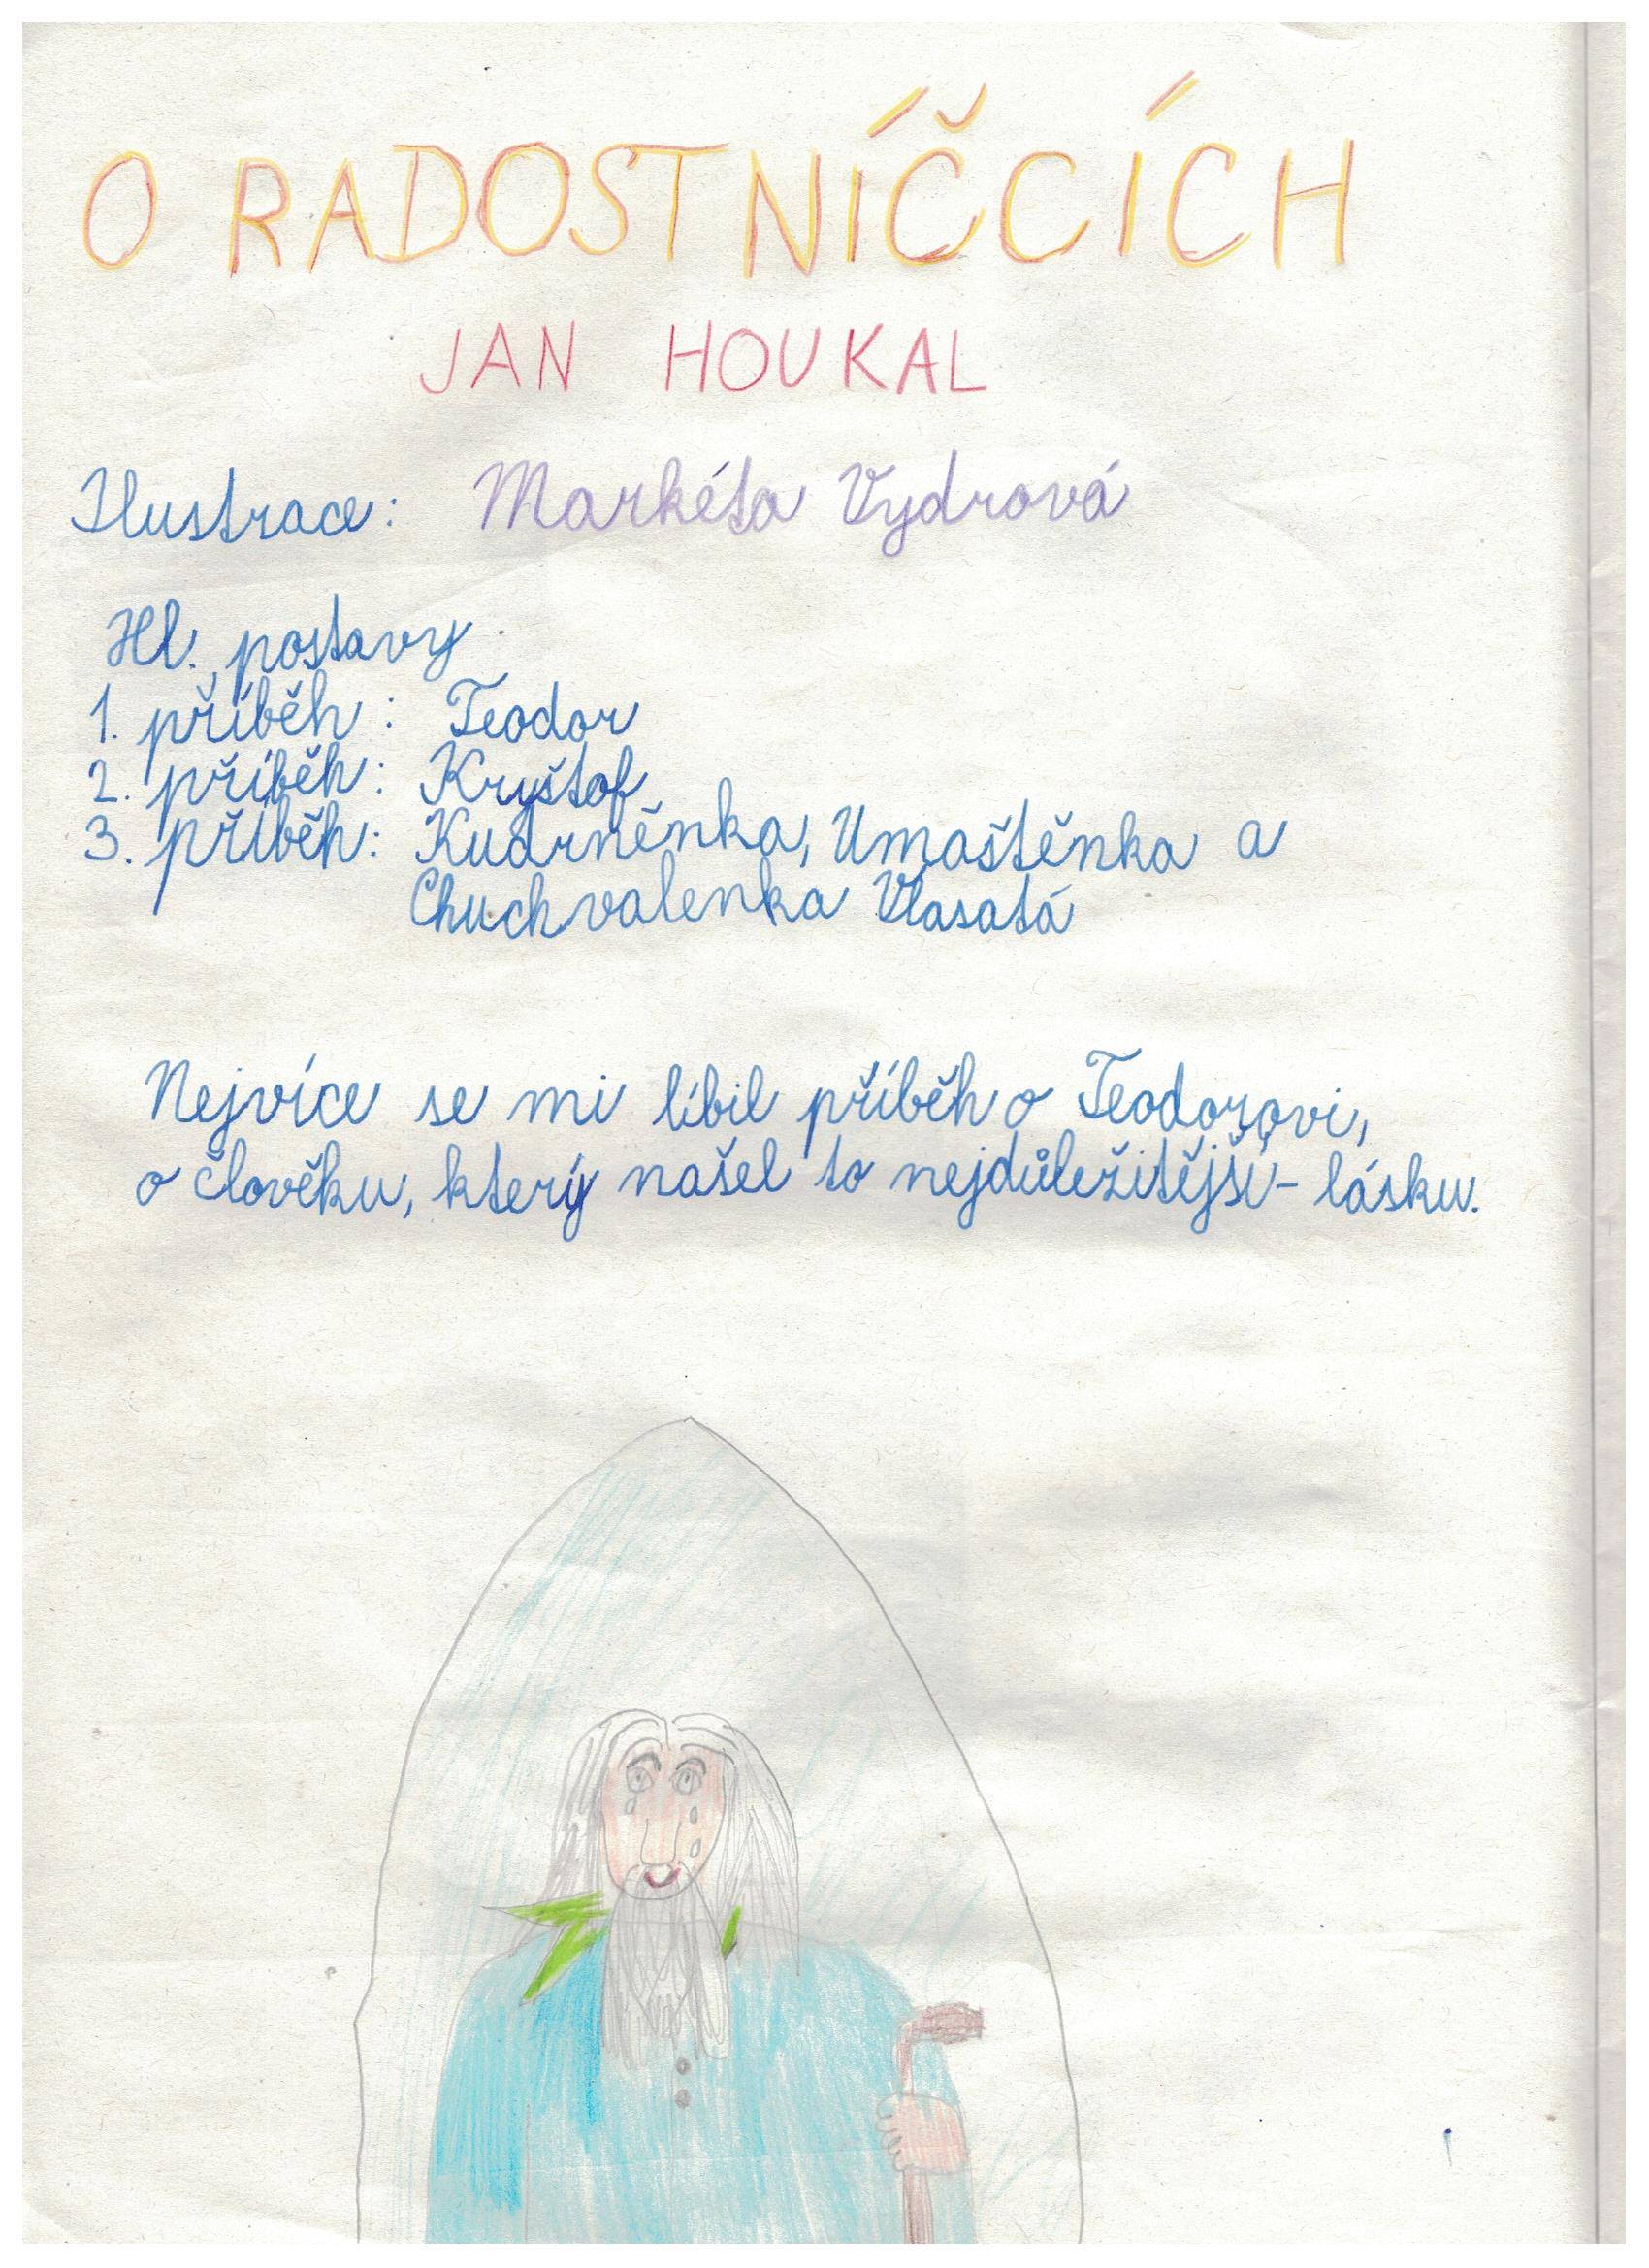 O RADOSTNÍČCÍCH
JAN HOUKAL
Ilustrace: Markéta Vydrová
Hl. postavy
1. příběh: Teodor
2. příběh: Kryštof
3. příběh: Kudrněnka, Umaštěnka a
Chuchvalenka Vlasatá
Nejvíce se mi líbil příběh o Teodorovi,
o člověku, který našel to nejdůležitější - lásku.